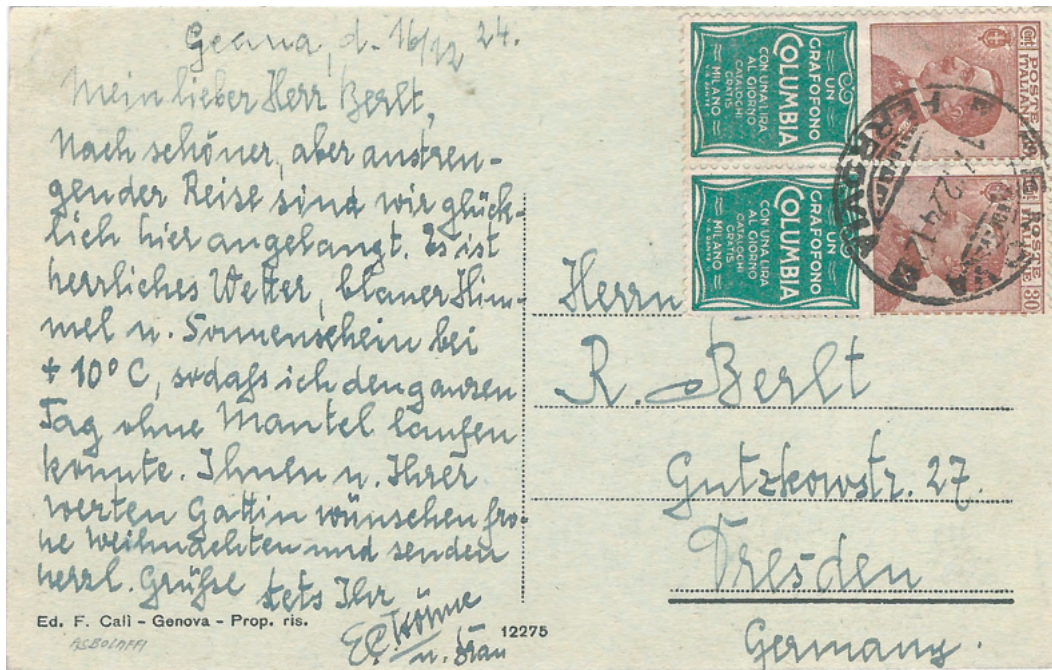 Genua, d. 16/12 24.
Mein lieber Herr Berlt,
Nach schöner, aber anstren-
gender Reise sind wir glück-
lich hier angelangt. Es ist
herrliches Wetter, blauer Him-
mel u. Sonnenschein bei
+ 10° C, sodaß ich den ganzen
Tag ohne Mantel laufen
konnte. Ihnen u. Ihrer
werten Gattin wünschen fro-
he Weihnachten und senden
herzl. Grüße stets Ihr
u. Frau
Ed. F. Cali - Genova - Prop. ris.
12275
ASBOLAFFI
UN
GRAFOFONO
COLUMBIA
CON UNA LIRA
AL GIORNO
CATALOGHI
GRATIS
MILANO
Cent.
POSTE
ITALIANE
UN
GRAFOFONO
COLUMBIA
CON UNA LIRA
AL GIORNO
CATALOGHI
GRATIS
MILANO
POSTE
30
FERROVIA
Herrn
R. Berlt
Gutzkowstr. 27.
Dresden
Germany.